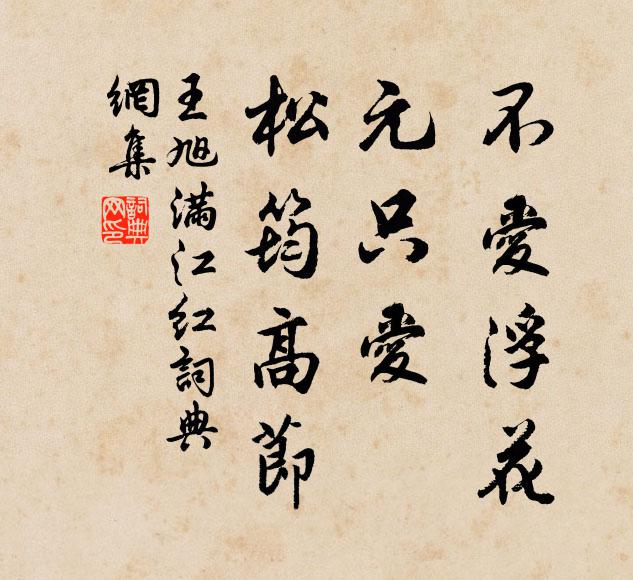 不愛浮花
元只愛
松筠高節
王旭滿江紅詞典
網集
詞典
网印